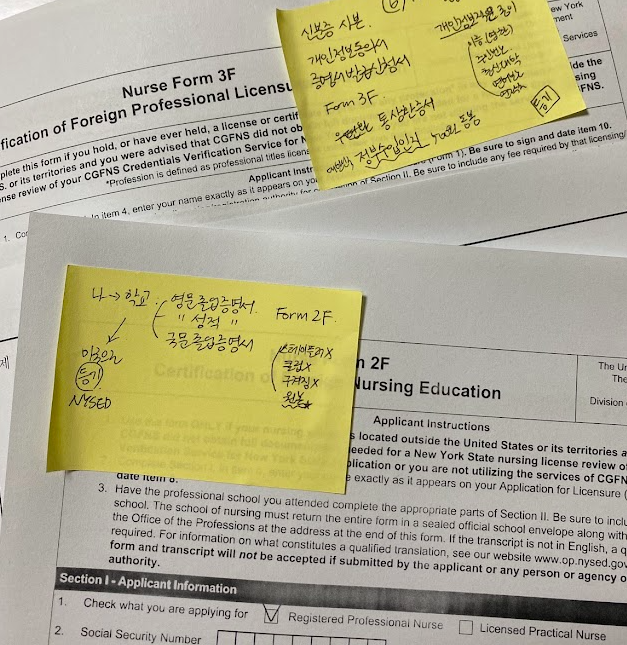 Nurse Form 3F
fication of Foreign Professional Licensu
plete this form if you hold, or have ever held, a license or certif
S. or its territories and you were advised that CGFNS did not ob
nse review of your CGFNS Credentials Verification Service for N
*Profession is defined as professional titles licens
Applicant Instr
ew York
ment
Services
ide the
sing
FNS.
신분증 사본.
개인정보동의서
증명서발급신청서
Form 3F
통상환증서
정부수입인지
동봉
이름(영문)
등기
(Form 1). Be sure to sign and date item 10.
of Section II. Be sure to include any fee required by that licensing/
1. Co
In item 4, enter your name exactly as it appears on yo
나 → 학교
영문졸업증명서.
" 성적 "
국문졸업증명서
Form 2F.
등기
NYSED
스테이플러X
클립X
구겨짐X
원본
2F
Certification of
Nursing Education
The Ur
The
Division
Applicant Instructions
s located outside the United States or its territories a
eeded for a New York State nursing license review of
plication or you are not utilizing the services of CGFN
e exactly as it appears on your Application for Licensure (
date item 8.
3. Have the professional school you attended complete the appropriate parts of Section II. Be sure to inclu
school. The school of nursing must return the entire form in a sealed official school envelope along with
the Office of the Professions at the address at the end of this form. If the transcript is not in English, a q
required. For information on what constitutes a qualified translation, see our website www.op.nysed.gov
form and transcript will not be accepted if submitted by the applicant or any person or agency o
authority.
Section I - Applicant Information
1. Check what you are applying for
Registered Professional Nurse
Licensed Practical Nurse
2. Social Security Number